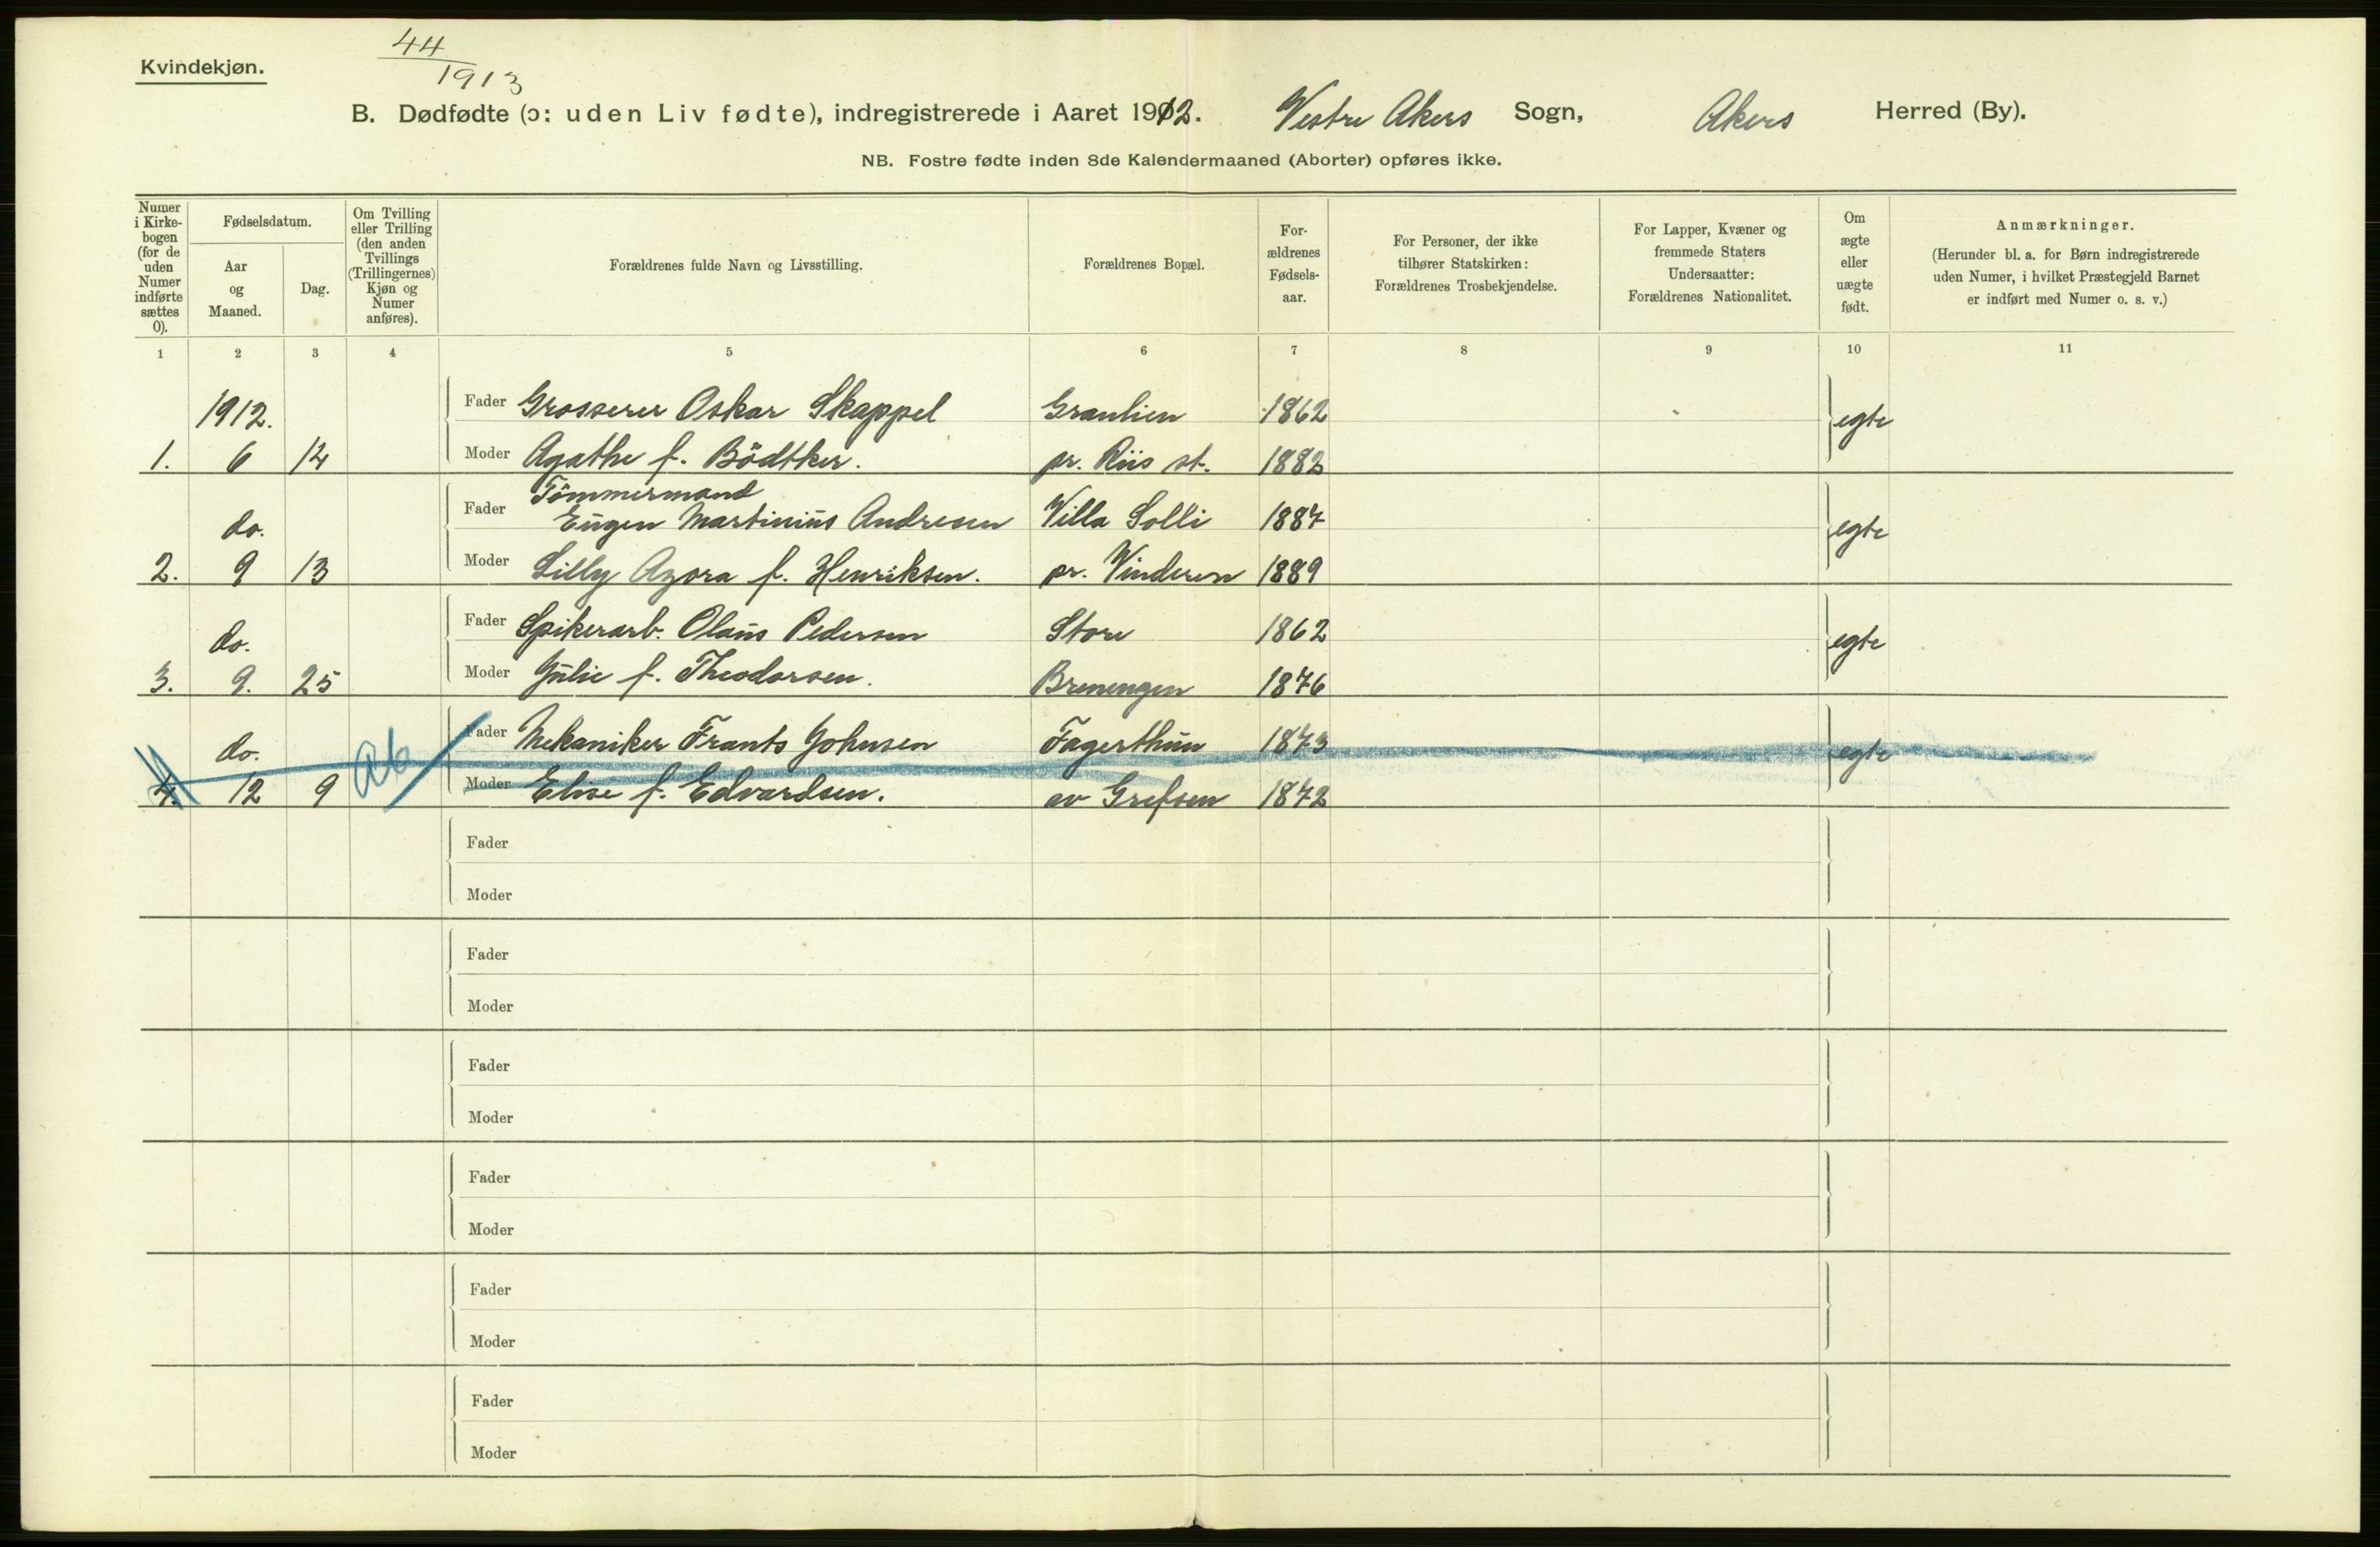 44
1913
Kvindekjøn.
B. Dødfødte (ɔ: uden Liv fødte), indregistrerede i Aaret 1912. Vestre Akers Sogn, Akers Herred (By).
NB. Fostre fødte inden 8de Kalendermaaned (Aborter) opføres ikke.
Numer
i Kirke-
bogen
(for de
uden
Numer
indførte
sættes
0).
Fødselsdatum.
Aar
og
Maaned.
Dag.
Om Tvilling
eller Trilling
(den anden
Tvillings
(Trillingernes)
Kjøn og
Numer
anføres).
Forældrenes fulde Navn og Livsstilling.
Forældrenes Bopæl.
For-
ældrenes
Fødsels-
aar.
For Personer, der ikke
tilhører Statskirken:
Forældrenes Trosbekjendelse.
For Lapper, Kvæner og
fremmede Staters
Undersaatter:
Forældrenes Nationalitet.
Om
ægte
eller
uægte
født.
Anmærkninger.
(Herunder bl. a. for Børn indregistrerede
uden Numer, i hvilket Præstegjeld Barnet
er indført med Numer o. s. v.)
1 2 3 4 5 6 7 8 9 10 11
1912. Fader Grosserer Oskar Skappel Granlien 1862 egte
1. 6 14 Moder Agathe f. Bödtker. pr. Riis st. 1882
Tömmermand
do. Fader Eugen Martinius Andresen Villa Solli 1887 egte
2. 9 13 Moder Lilly Azora f. Henriksen. pr. Vinderen 1889
do. Fader Spikerarb. Olaus Pedersen Store 1862 egte
3. 9. 25 Moder Julie f. Theodorsen. Brenengen 1876
do. Ab Fader Mekaniker Frants Johnsen Fagerthun 1873 egte
4. 12 9 Moder Elise f. Edvardsen. av Grefsen 1872
Fader
Moder
Fader
Moder
Fader
Moder
Fader
Moder
Fader
Moder
Fader
Moder